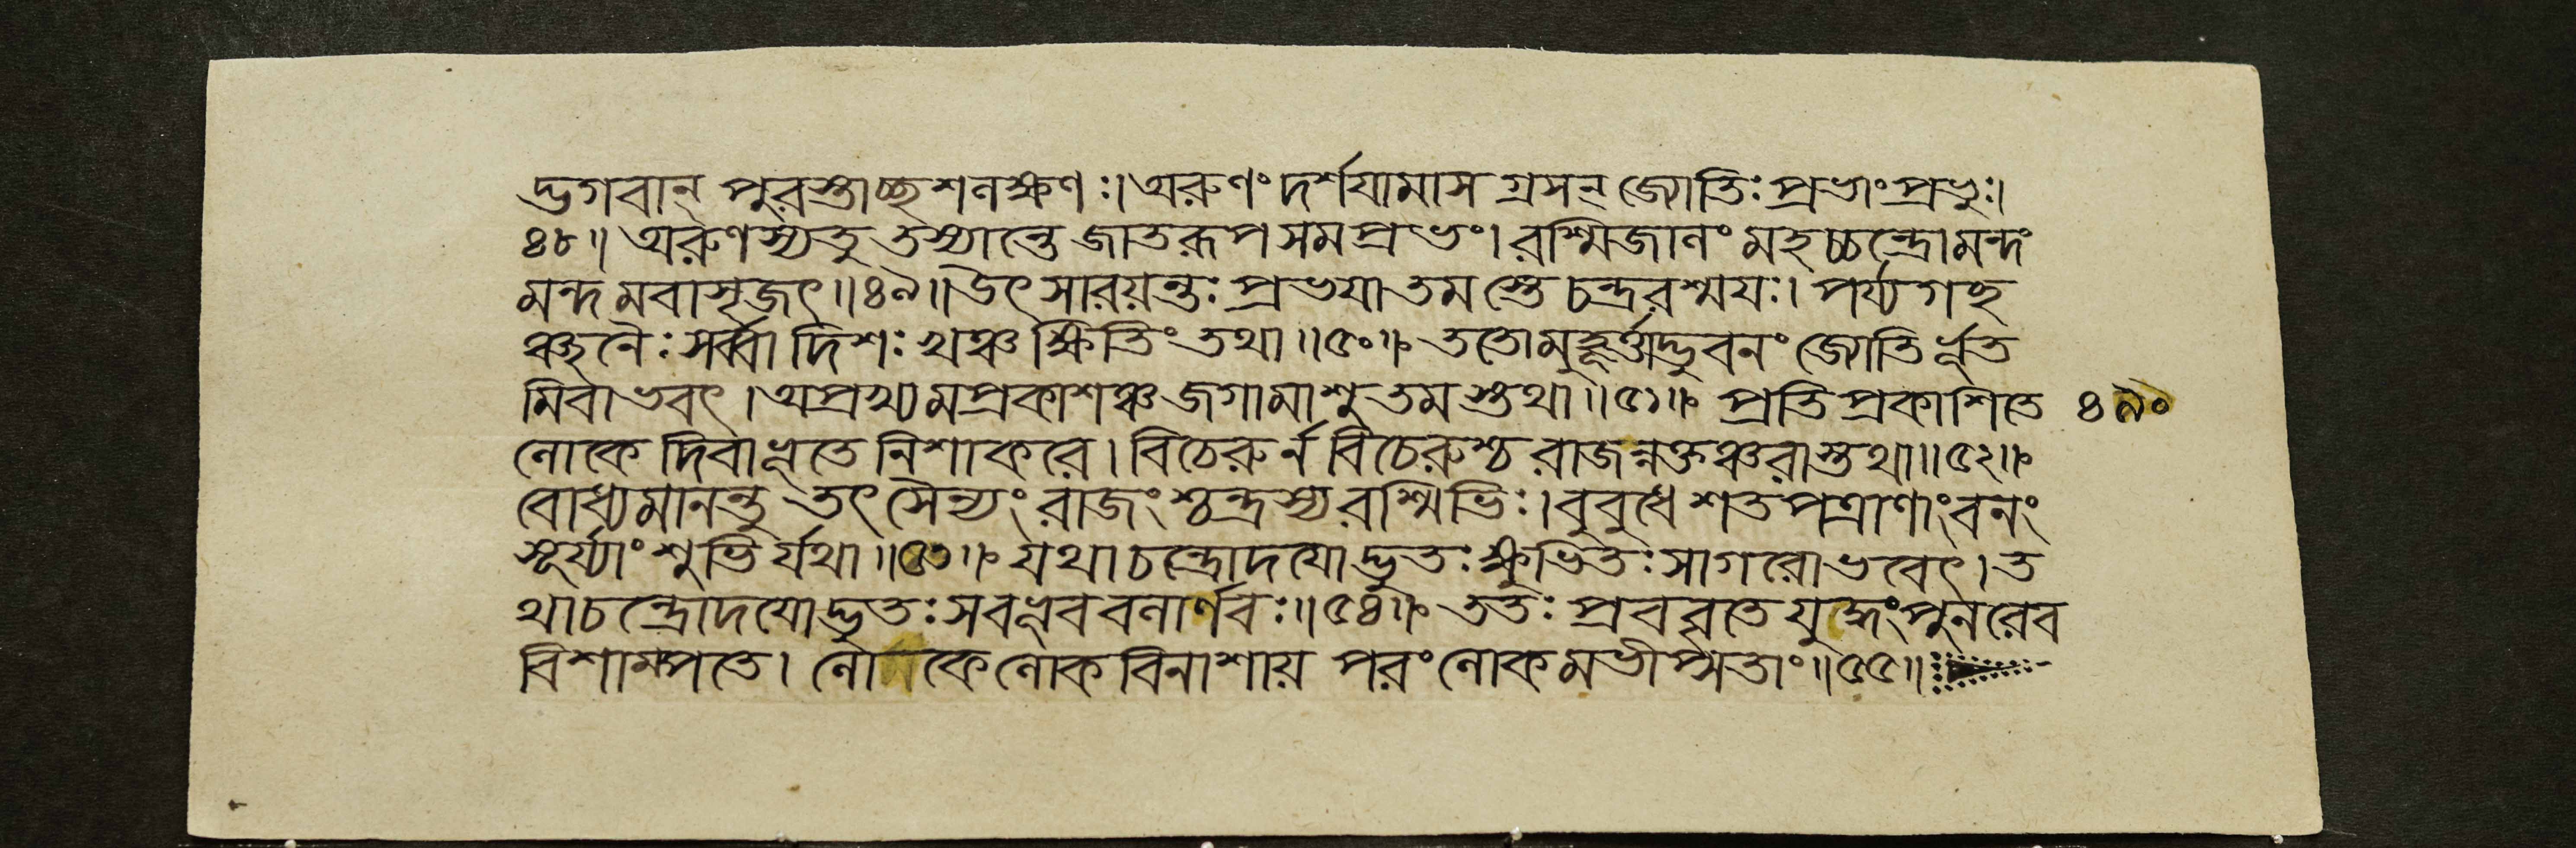 দ্ভগবান্ পুরস্তাচ্ছশলক্ষণঃ। অরুণং দর্শযামাস গ্রসন্ জ্যোতিঃ প্রভাং প্রভুঃ।
৪৮॥ অরুণস্যতু তস্যান্তে জাতরূপসমপ্রভং। রশ্মিজালং মহচ্চন্দ্রো মন্দং
মন্দমবাসৃজৎ॥৪৯॥ উৎসারয়ন্তঃ প্রভযা তমস্তে চন্দ্ররশ্ময়ঃ। পর্য্যগচ্ছ
ঞ্ছনৈঃ সর্ব্বা দিশঃ খঞ্চ ক্ষিতিং তথা॥৫০॥ ততো মুহূর্ত্তাদ্ভুবনং জ্যোতির্ভূত
মিবাভবৎ। অপ্রখ্যমপ্রকাশঞ্চ জগামাশু তমস্তথা॥৫১॥ প্রতিপ্রকাশিতে ৪৯০
লোকে দিবাভূতে নিশাকরে। বিচেরুর্ন বিচেরুশ্চ রাজন্নক্তঞ্চরাস্তথা॥৫২॥
বোধ্যমানন্তু তৎ সৈন্যং রাজংশ্চন্দ্রস্য রশ্মিভিঃ। বুবুধে শতপত্রাণাং বনং
সূর্য্যাংশুভির্যথা॥৫৩॥ যথা চন্দ্রোদযোদ্ভূতঃ ক্ষুভিতঃ সাগরো ভবেৎ। ত
থা চন্দ্রোদযোদ্ভূতঃ সবভূব বলার্ণবঃ॥৫৪॥ ততঃ প্রববৃতে যুদ্ধং পুনরেব
বিশাম্পতে। লোকে লোকবিনাশায় পরং লোকমভীপ্সতাং॥৫৫॥